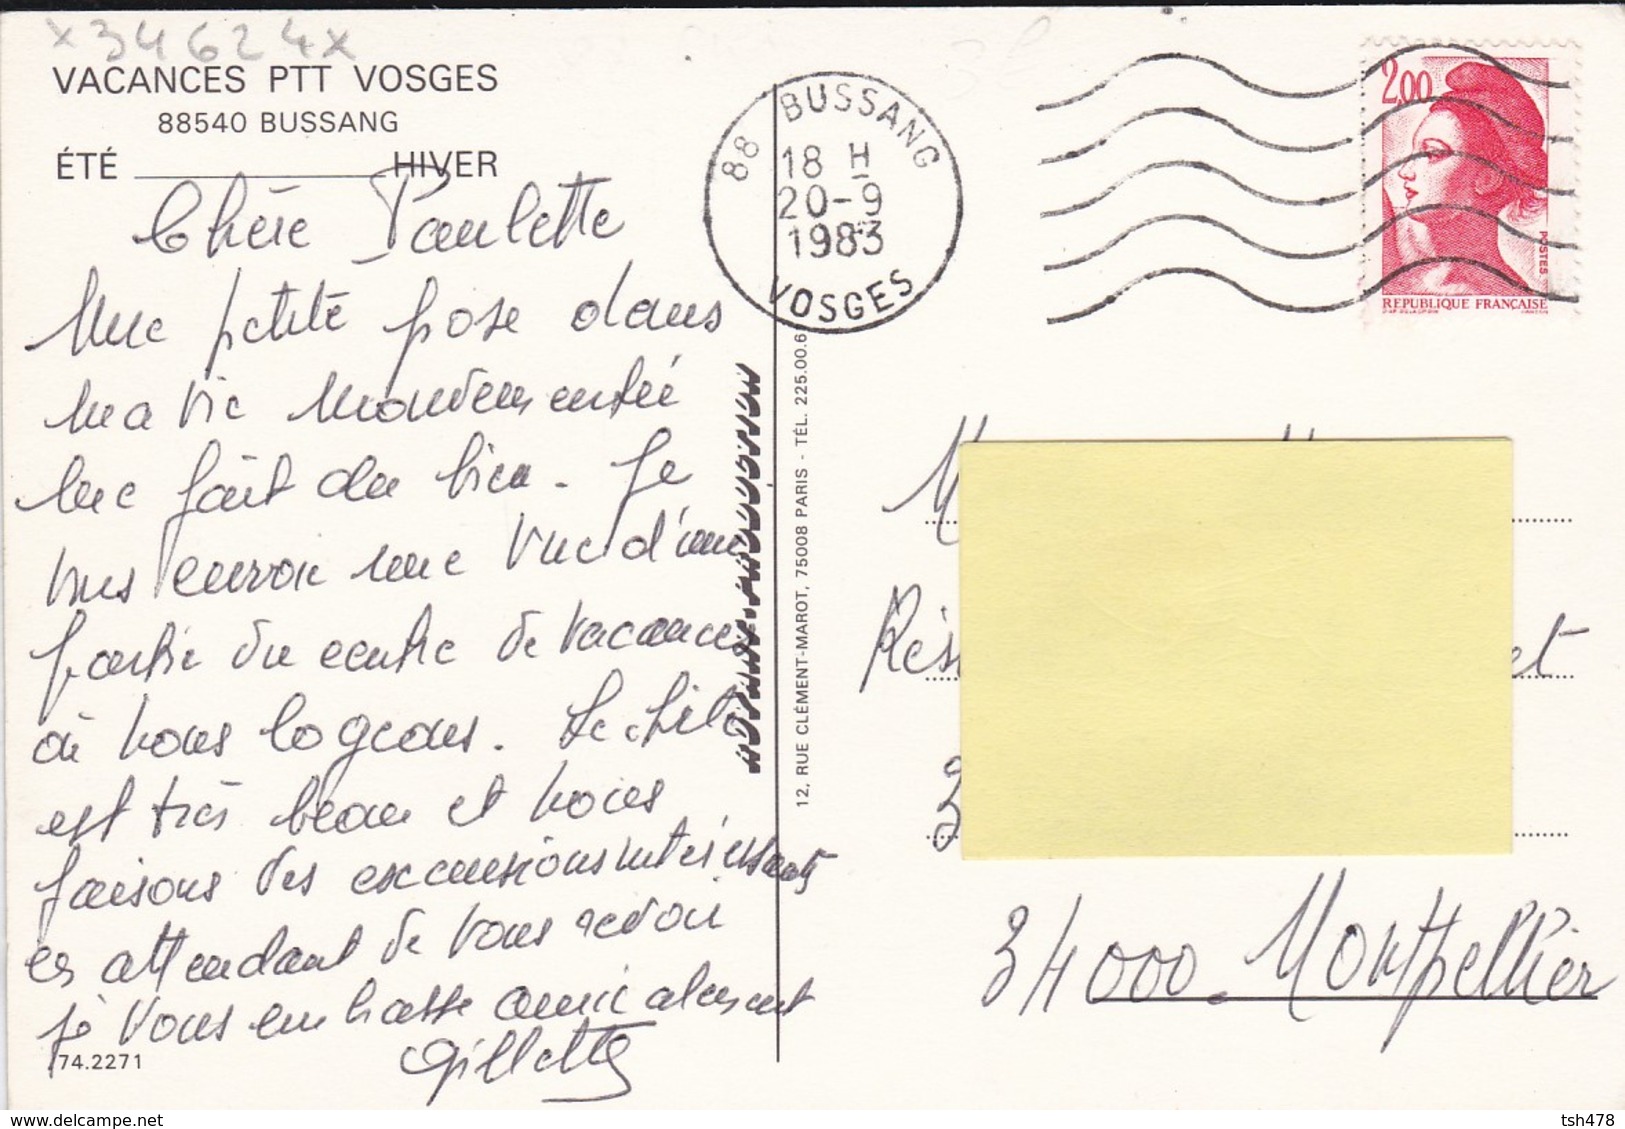 x34624x
VACANCES PTT VOSGES
88540 BUSSANG
ÉTÉ HIVER
Chère Paulette
Une petite pose dans
ma vie mouvementée
me fait du bien. Je
vous envoie une vue d'une
partie du centre de vacances
où nous logeons. Le site
est très beau et nous
faisons des excursions intéressantes
en attendant de vous revoir
je vous embrasse amicalement
Gillette
74.2271
88 BUSSANG
18 H
20-9
1983
VOSGES
12, RUE CLÉMENT-MAROT, 75008 PARIS - TÉL. 225.00.6
2,00
POSTES
REPUBLIQUE FRANÇAISE
M
Rés et
34000. Montpellier
www.delcampe.net
tsh478